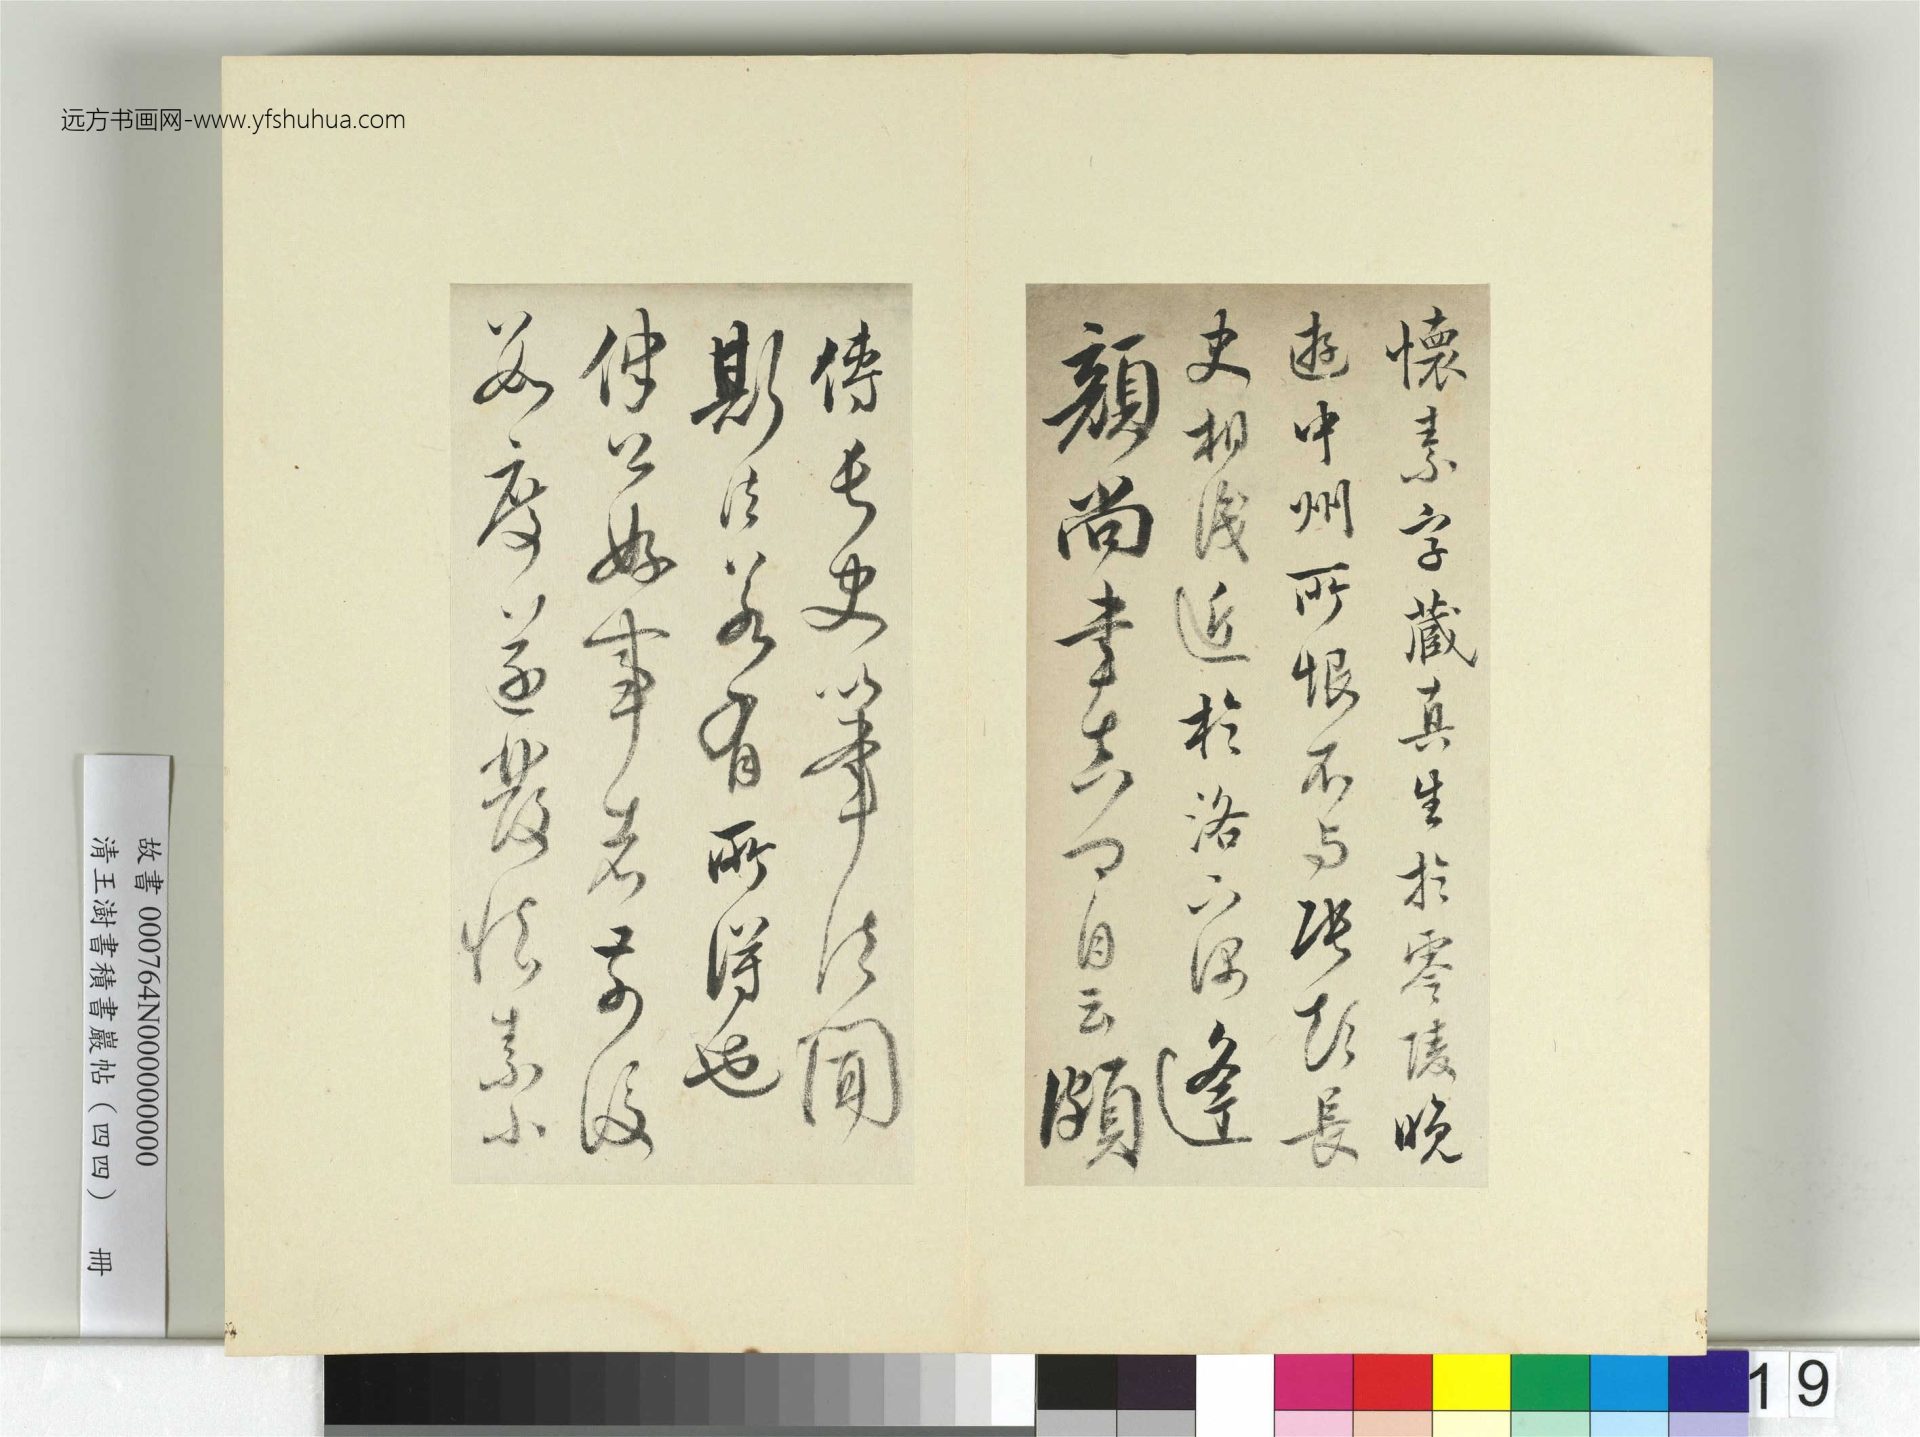 远方书画网-www.yfshuhua.com
懷素字藏真生於零陵晚
遊中州所恨不与張顛長
史相識近於洛下偶逢
顏尚書真卿自云頗
傳長史筆法聞
斯法若有所得也
律公好事者前後
數度遂發懷素小
故書 000764N000000000
清王澍書積書巖帖(四四) 冊
19